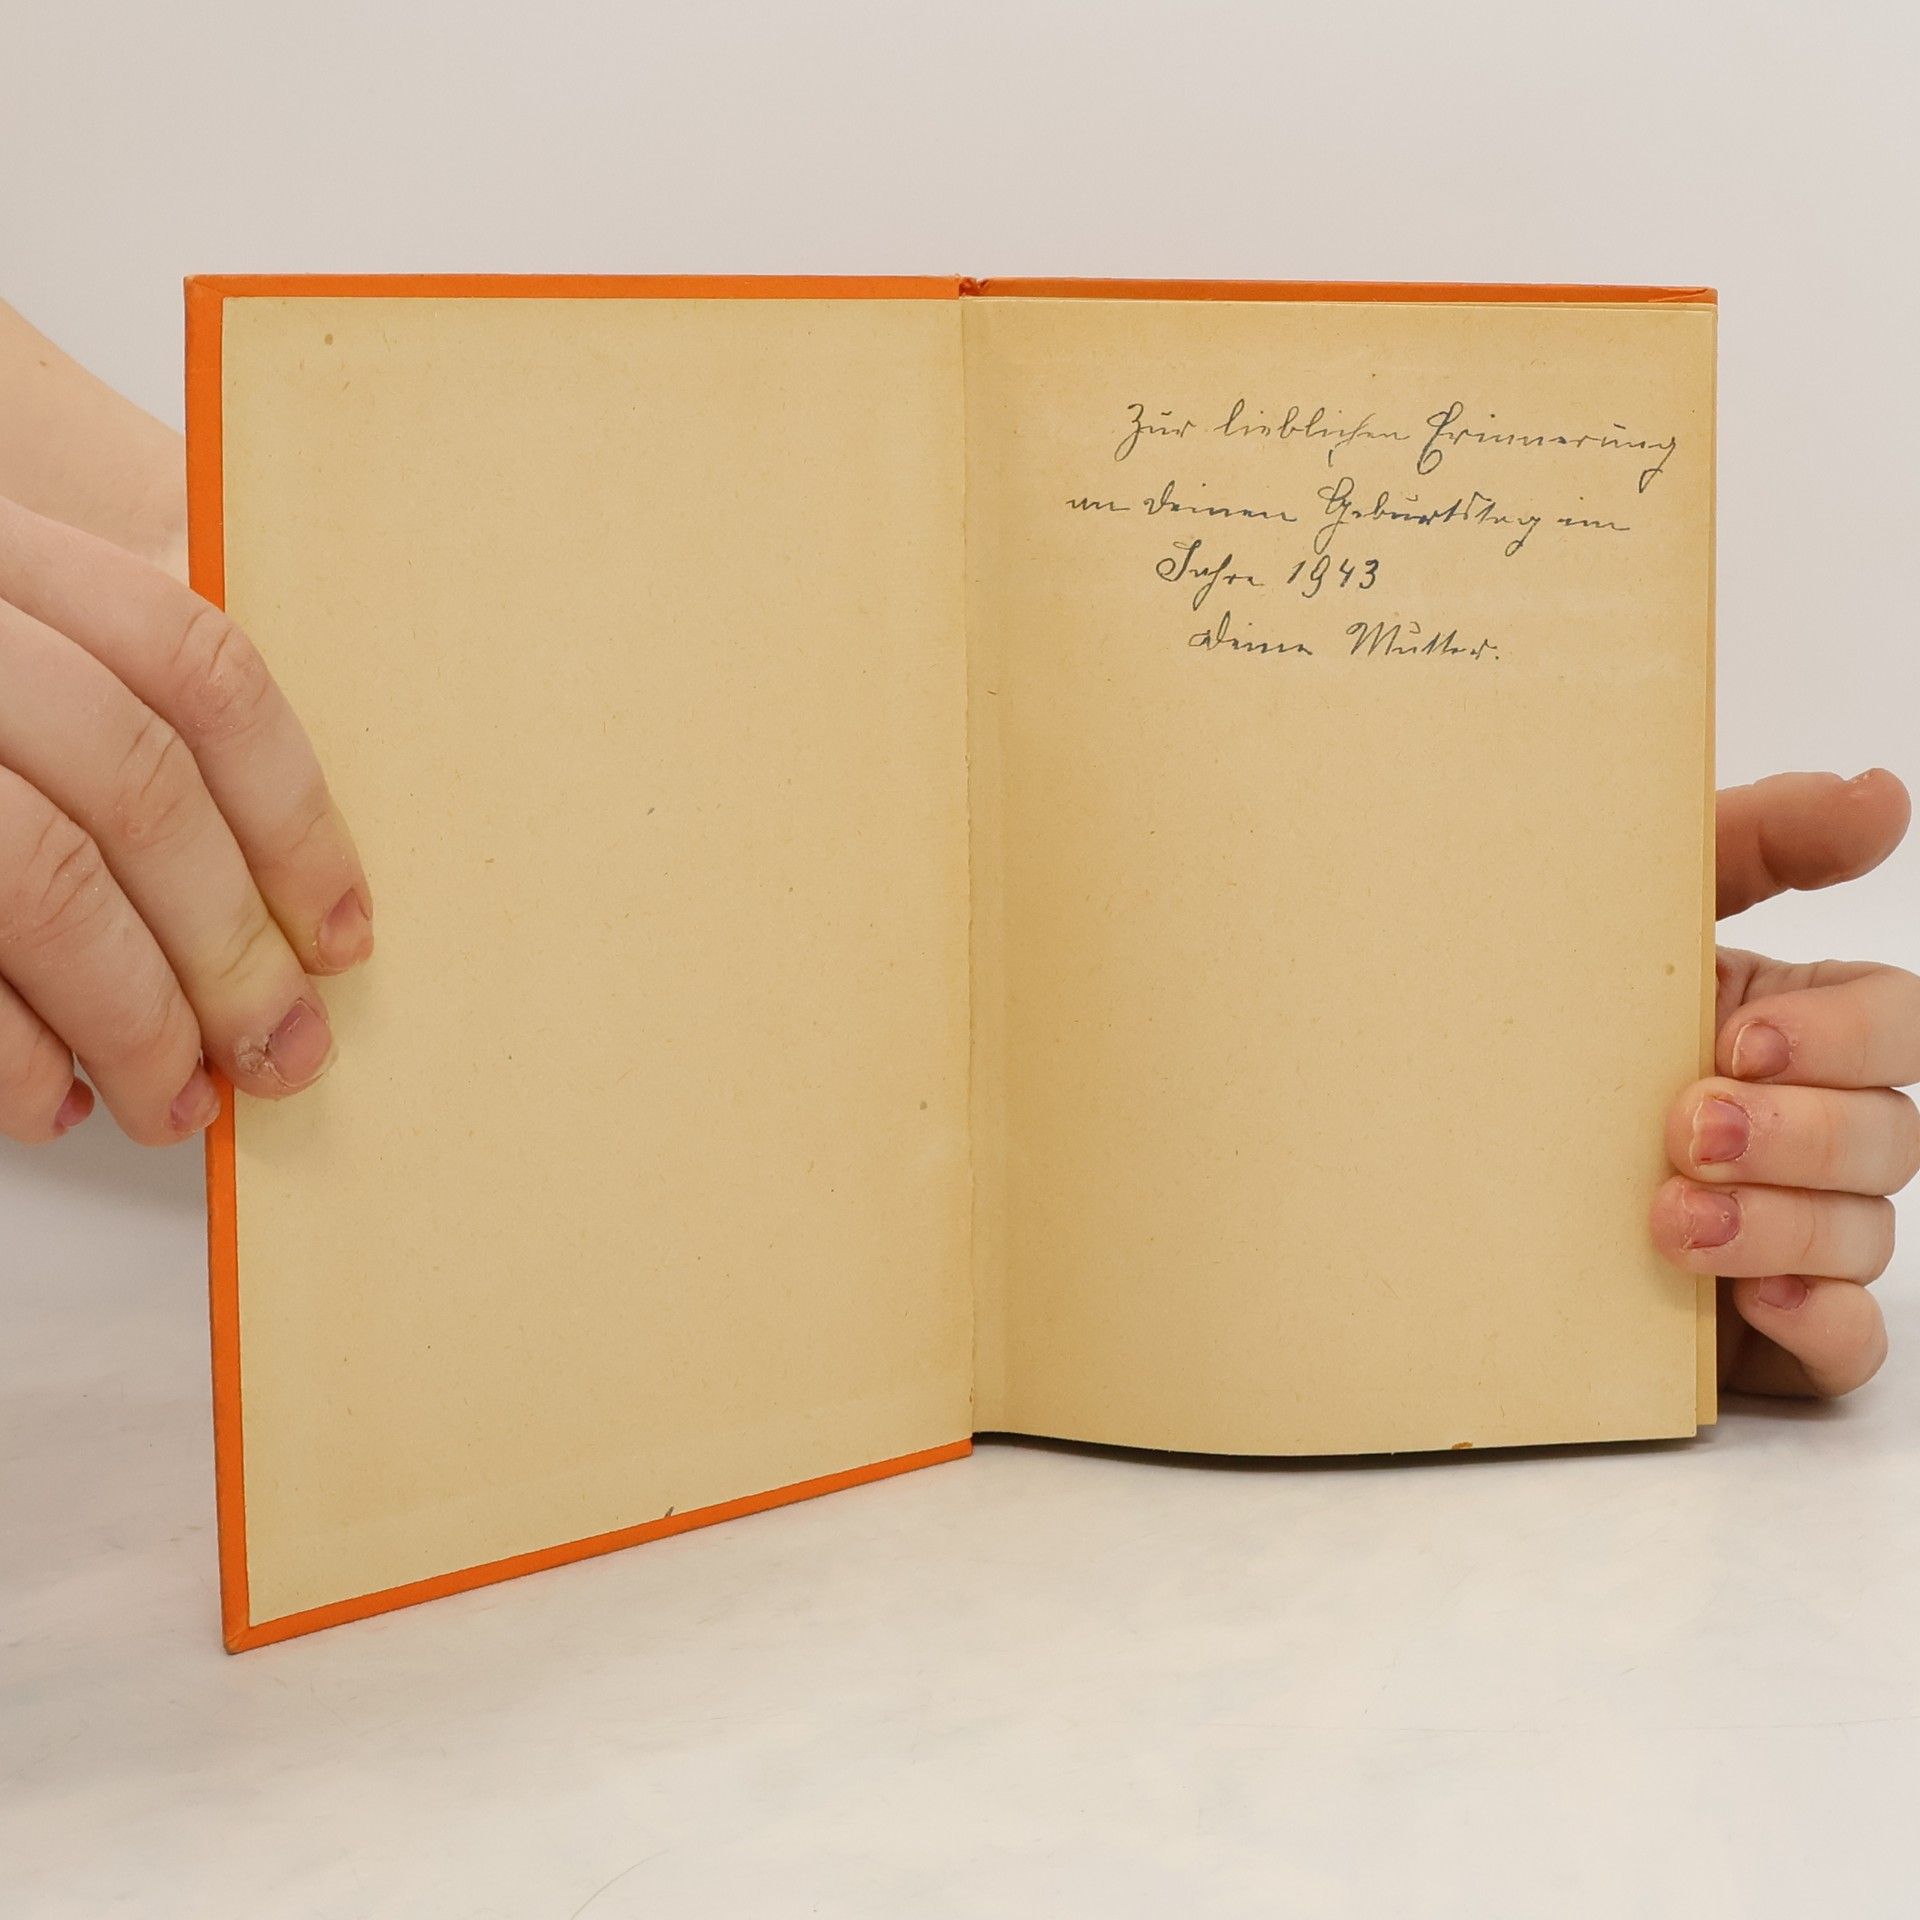 Zur lieblichen Erinnerung
an Deinen Geburtstag im
Jahre 1943
Deine Mutter.